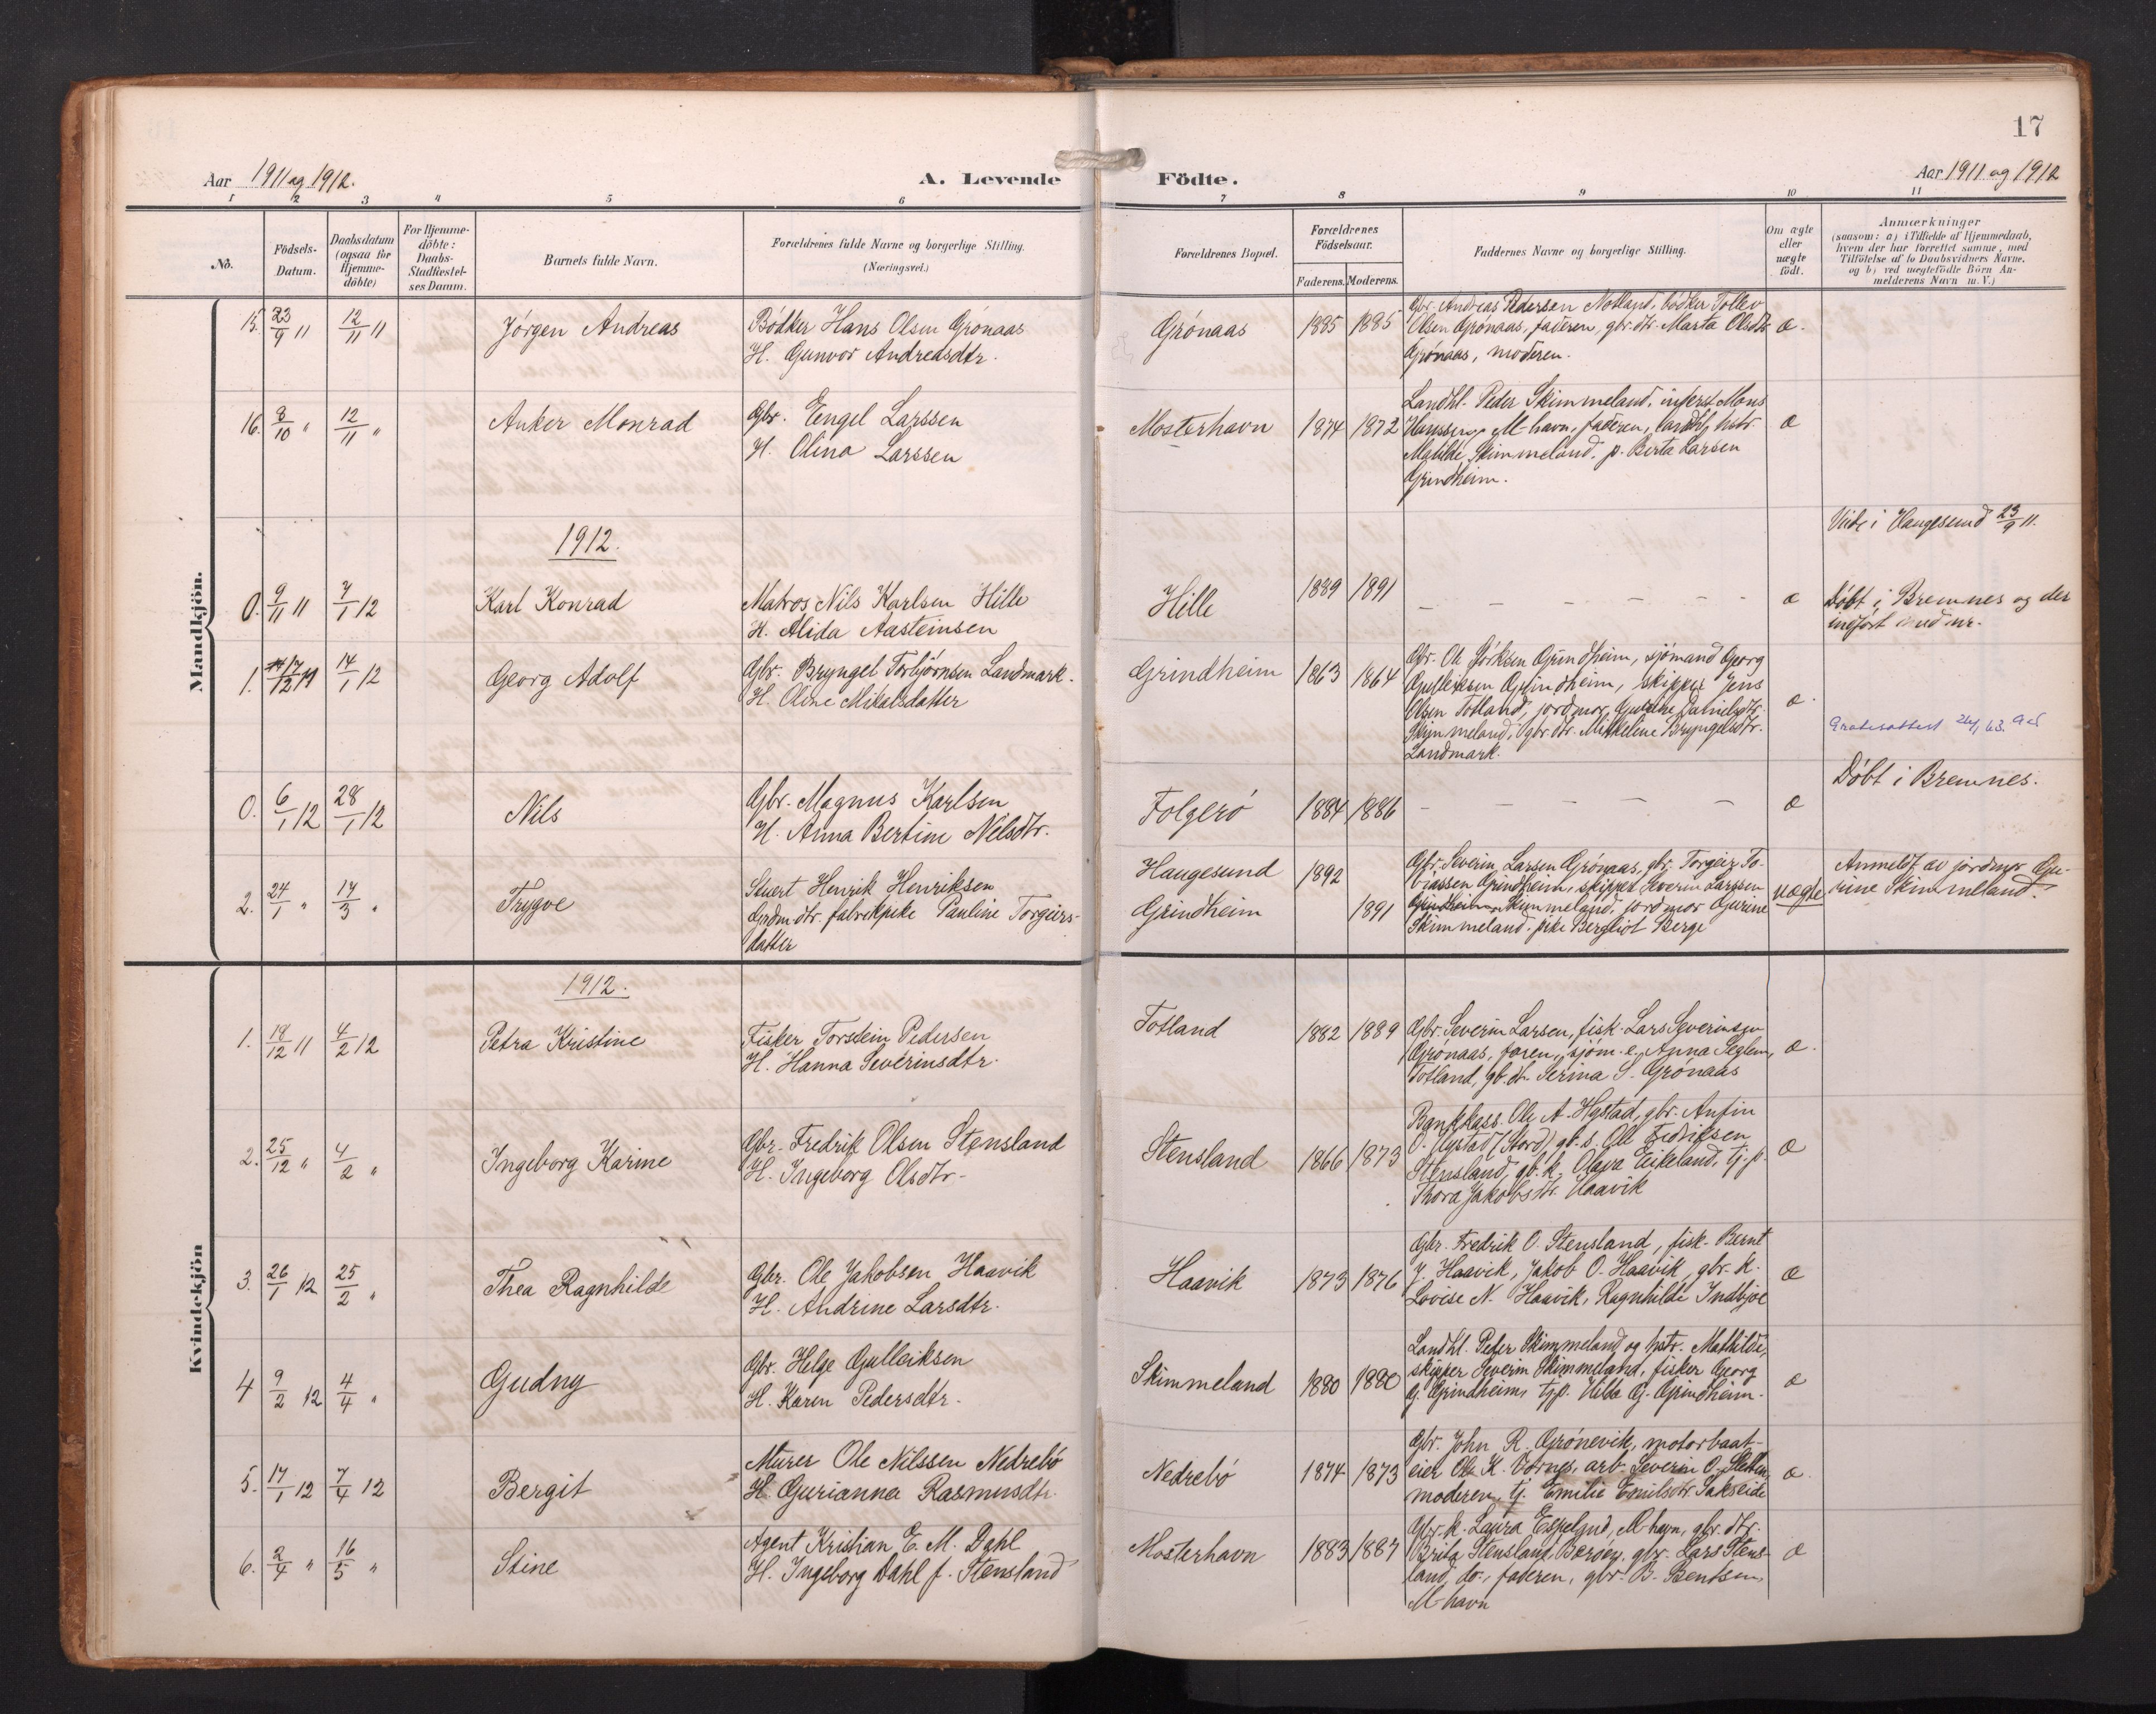 17
Aar 1911 og 1912.
A. Levende
Födte.
Aar 1911 og 1912
1 2 3 4 5 6 7 8 9 10 11
No.
Födsels-Datum.
Daabsdatum (ogsaa for Hjemme-döbte)
For Hjemme-döbte: Daabs-Stadfæstel-ses Datum.
Barnets fulde Navn.
Forældrenes fulde Navne og borgerlige Stilling.
(Næringsvei.)
Forældrenes Bopæl.
Forældrenes Födselsaar.
Faderens. Moderens.
Faddernes Navne og borgerlige Stilling.
Om ægte eller uægte födt.
Anmærkninger
(saasom: a) i Tilfælde af Hjemmedaab,
hvem der har forrettet samme, med
Tilföielse af to Daabsvidners Navne,
og b) ved uegtefödte Börn An-
melderens Navn m. V.)
Mandkjön.
15. 23/9 11 12/11 11 Jörgen Andreas
Bödker Hans Olsen Grönaas
H. Gunvor Andreasdtr.
Grönaas 1885 1885
Gbr. Andreas Pedersen Notland, bödker Tollev
Olsen Grönaas, faderen, gbr. dtr. Marta Olsdtr
Grönaas, moderen.
æ.
16. 8/10 " 12/11 " Anker Monrad
Gbr. Engel Larssen
H. Olina Larssen
Mosterhavn 1874 1872
Landhl. Peder Skimmeland, inders. Mons
Hanssen, M-havn, faderen, landhl. hstr.
Matilde Skimmeland, p. Berta Larsen
Grindheim.
æ
1912.
0. 9/11 11 7/1 12 Karl Konrad
Matros Nils Karlsen Hille
H. Alida Aasteinsen
Hille 1889 1891
– – – – – –
æ
Viede i Haugesund 23/9 11.
Döbt i Bremnes og der
indfört med nr.
1. 17/12 11 14/1 12 Georg Adolf
Gbr. Bryngel Torbjörnsen Landmark.
H. Oline Mikalsdatter
Grindheim 1863 1864
Gbr. Ole Grindheim, sjömand Georg
Gulleiksen Grindheim, skipper Jens
Olsen Totland, jordmor Gurine Danielsdtr.
Skimmeland, gbr. dtr. Mikkeline Bryngelsdtr.
Landmark.
æ.
0. 6/1 12 28/1 12 Nils
Gbr. Magnus Karlsen
H. Anna Bertine Nilsdtr.
Folgerö 1884 1886
– – – – –
æ
Döbt i Bremnes.
2. 24/1 " 17/3 " Trygve
Stuert Henrik Henriksen
Grdmdtr. fabrikpike Pauline Torgeirs-
datter
Haugesund 1892
Grindheim 1891
Gbr. Severin Larsen Grönaas, gbr. Torgeir To-
biassen Grindheim, skipper Severin Larssen
Skimmeland, jordmor Gurine
Skimmeland, pike Bergliot Berge
uægte
Anmeldt av jordmor Gu-
rine Skimmeland.
Kvindekjön
1912.
1. 18/12 11 4/2 12 Petra Kristine
Fisker Torstein Pedersen
H. Hanna Severinsdtr.
Totland 1882 1889
Gbr. Severin Larsen, fisk. Lars Severinsen
Grönaas, faren, sjöm. e. Anna Seglem,
Totland, gb. dtr. Serina S. Grönaas
æ.
2. 25/12 " 4/2 " Ingeborg Karine
Gbr. Fredrik Olsen Stensland
H. Ingeborg Olsdtr.
Stensland 1866 1873
Bankkass. Ole A. Hystad, gbr. Anfin
O. Hystad (Stord) gb. s. Ole Fredriksen
Stensland, gb. k. Olava Eikeland, tj. p.
Thora Jakobsdtr. Haavik
æ
3. 26/1 12 25/2 " Thea Ragnhilde
Gbr. Ole Jakobsen Haavik
H. Andrine Larsdtr.
Haavik 1873 1876
Gbr. Fredrik O. Stensland, fisk. Bernt
J. Haavik, Jakob O. Haavik, gbr. k.
Lovise N. Haavik, Ragnhilde Indbjoe
æ
4 9/2 12 4/4 " Gudny
Gbr. Helge Gulleiksen
H. Karen Pedersdtr.
Skimmeland 1880 1880
Landhl. Peder Skimmeland og hstr. Mathilde,
skipper Severin Skimmeland, fisker Georg
G. Grindheim, tjp. Hilda G. Grindheim.
æ
5. 17/1 12 7/4 12 Bergit
Murer Ole Nilssen Nedrebö
H. Gurianna Rasmusdtr.
Nedrebö 1874 1873
Gbr. John R. Grönevik, motorbaat-
eier Ole K. Vornes, arb. Severin O. Sletten,
moderen, tj. Emilie Emilsdtr. Sakseide
æ.
6. 2/4 " 16/5 " Stine
Agent Kristian E. M. Dahl
H. Ingeborg Dahl f. Stensland
Mosterhavn 1883 1887
Gbr. k. Laura Espelund, M-havn, gbr. dtr.
Brita Stensland, Baröen, gbr. Lars Stens-
land, do., faderen, gbr. B. Bentsen,
M-havn
æ